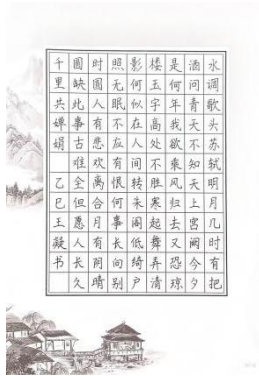 水调歌头苏轼明月几时有把
酒问青天不知天上宫阙今夕
是何年我欲乘风归去又恐琼
楼玉宇高处不胜寒起舞弄清
影何似在人间转朱阁低绮户
照无眠不应有恨何事长向别
时圆人有悲欢离合月有阴晴
圆缺此事古难全但愿人长久
千里共婵娟 乙巳王凝书